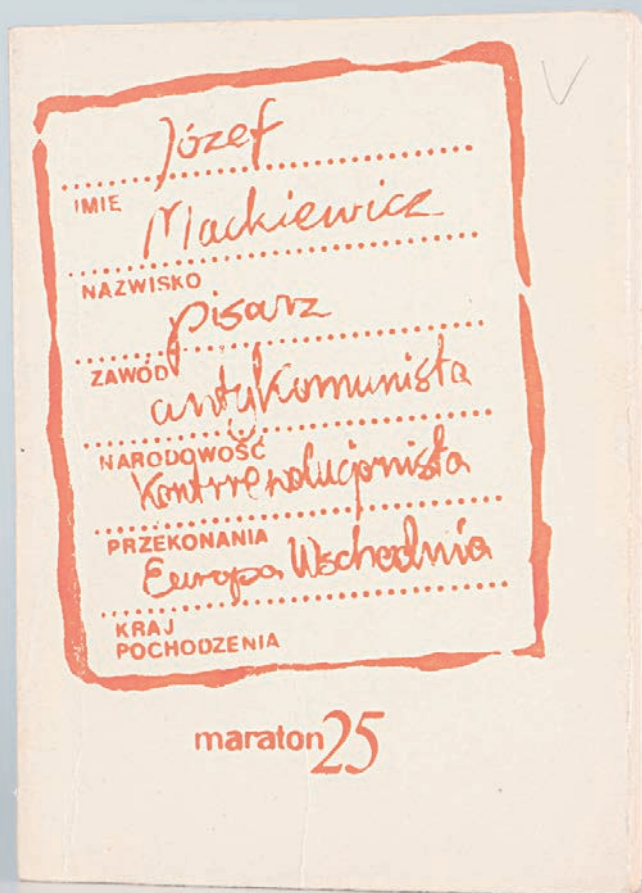 Józef
IMIĘ
Mackiewicz
NAZWISKO
pisarz
ZAWÓD
antykomunista
NARODOWOŚĆ
Kontrrewolucjonista
PRZEKONANIA
Europa Wschodnia
KRAJ
POCHODZENIA
maraton 25